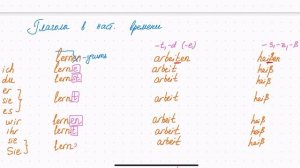 Глаголы в наст. времени
-t, -d (-e) -s, -z, -ß
lernen - учить arbeiten heißen
ich lern e arbeit heiß
du lern arbeit heiß
er
sie lern t arbeit heiß
es
wir lern en arbeit heiß
ihr lern t arbeit heiß
sie
Sie lern arbeit heiß